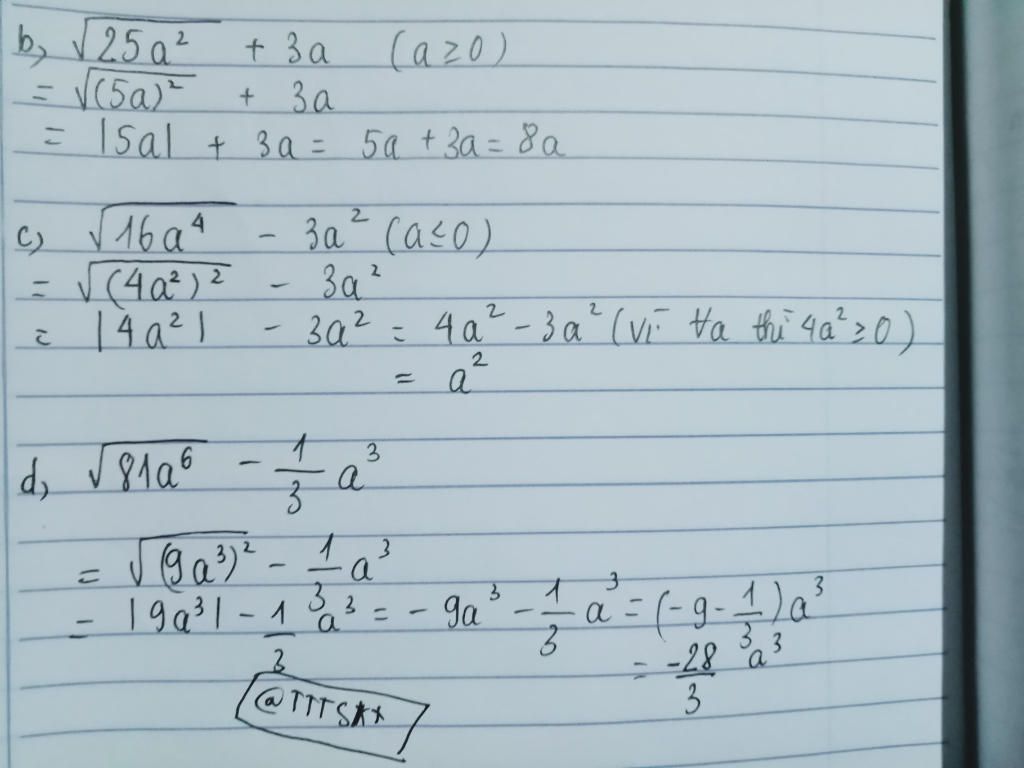 b, √25a² + 3a (a ≥ 0)
= √(5a)² + 3a
= |5a| + 3a = 5a + 3a = 8a
c, √16a⁴ - 3a² (a ≤ 0)
= √(4a²)² - 3a²
= |4a²| - 3a² = 4a² - 3a² (vì ∀a thì 4a² ≥ 0)
= a²
d, √81a⁶ - 1/3 a³
= √(9a³)² - 1/3 a³
= |9a³| - 1/3 a³ = -9a³ - 1/3 a³ = (-9 - 1/3)a³
= -28/3 a³
@TTTS